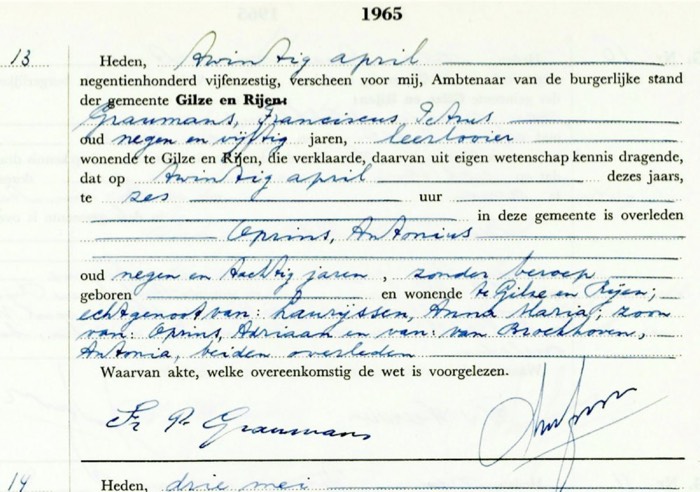 1965
13 Heden, twintig april
negentienhonderd vijfenzestig, verscheen voor mij, Ambtenaar van de burgerlijke stand
der gemeente Gilze en Rijen:
Graumans, Franciscus Petrus
oud negen en vijftig jaren, leerlooier
wonende te Gilze en Rijen, die verklaarde, daarvan uit eigen wetenschap kennis dragende,
dat op twintig april dezes jaars,
te zes uur
in deze gemeente is overleden
Oprins, Antonius
oud negen en tachtig jaren, zonder beroep
geboren en wonende te Gilze en Rijen;
echtgenoot van: Laurijssen, Anna Maria; zoon
van: Oprins, Adriaan en van: van Broekhoven,
Antonia, beiden overleden
Waarvan akte, welke overeenkomstig de wet is voorgelezen.
Fr P. Graumans
14 Heden, drie mei